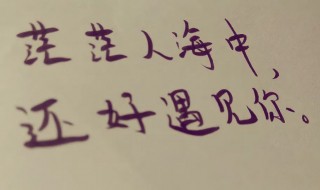 茫茫人海中,
还好遇见你。